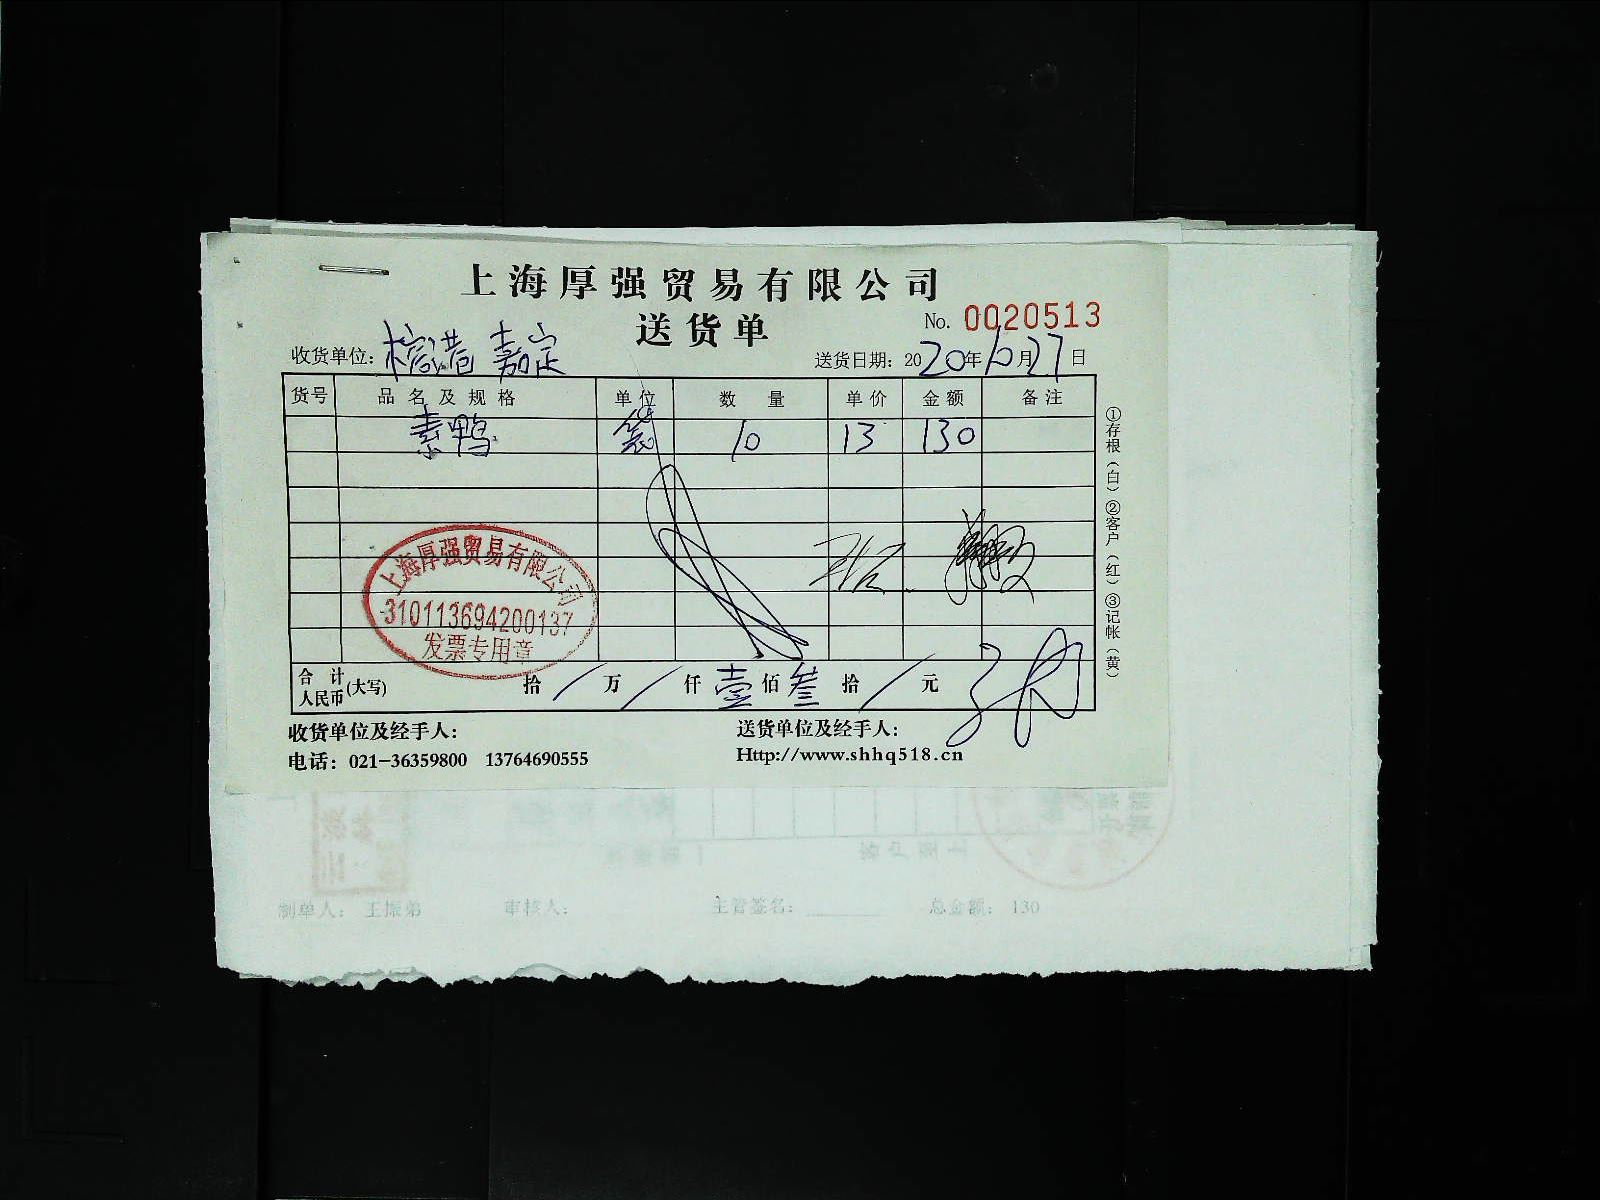 上海厚强贸易有限公司
送货单
No. 0020513
收货单位: 港 嘉定
送货日期: 2020年10月27日
货号 品名及规格 单位 数量 单价 金额 备注
素鸭 袋 10 13 130
①存根(白)②客户(红)③记帐(黄)
上海厚强贸易有限公司
310113694200137
发票专用章
合计人民币(大写) 拾 / 万 / 仟 壹 佰 叁 拾 / 元
收货单位及经手人:
送货单位及经手人:
电话: 021-36359800 13764690555
Http://www.shhq518.cn
制单人: 王振弟 审核人: 主管签名: 总金额: 130